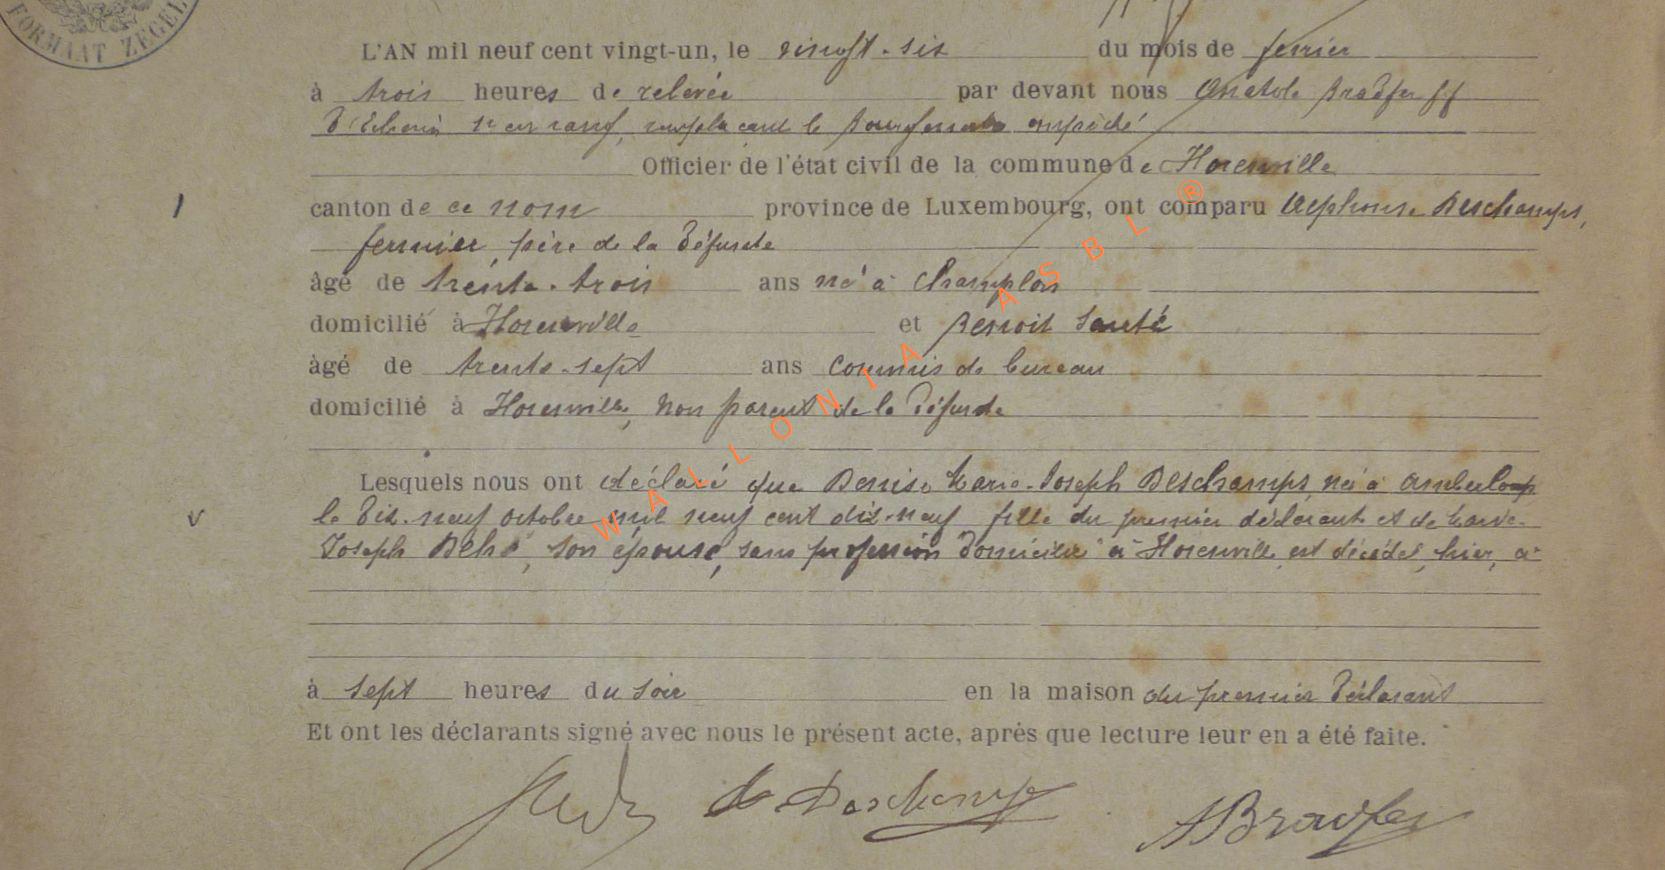 FORMAAT ZEGEL
L'AN mil neuf cent vingt-un, le vingt-six du mois de fevrier
à trois heures de relevée par devant nous Anatole Bradfer ff
d'Echevin remplaçant le Bourgmestre empêché
Officier de l'état civil de la commune de Horenville
canton de ce nom province de Luxembourg, ont comparu Alphonse Deschamps,
fermier, père de la défunte
âgé de trente-trois ans né à Champlon
domicilié à Horenville et Benoit
âgé de trente-sept ans commis de bureau
domicilié à Horenville, non parent de la défunte
Lesquels nous ont déclaré que Denise Marie-Joseph Deschamps, né à Amberloup
le dix-neuf octobre mil neuf cent dix-neuf fille du premier déclarant et de Marie-
Joseph son épouse, sans profession domiciliée à Horenville, est décédée, hier, à
à sept heures du soir en la maison du premier déclarant
Et ont les déclarants signé avec nous le présent acte, après que lecture leur en a été faite.
A Deschamps ABradfer
WALLONIA ASBL ®